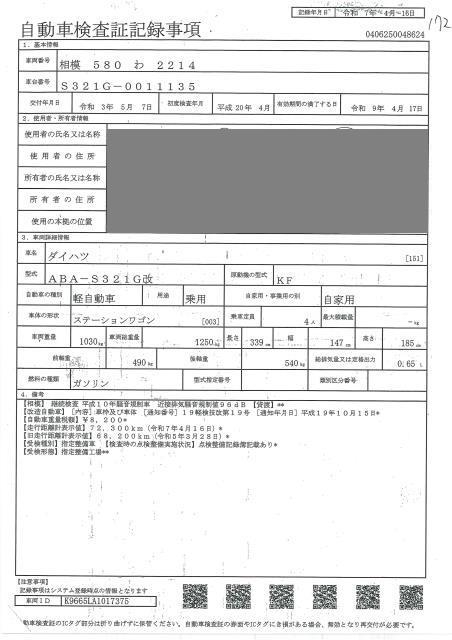 記録年月日 令和 7年 4月-16日
172
自動車検査証記録事項
0406250048624
1. 基本情報
車両番号 相模 580 わ 2214
車台番号 S321G-0011135
交付年月日 令和 3年 5月 7日 初度検査年月 平成20年 4月 有効期間の満了する日 令和 9年 4月 17日
2. 使用者・所有者情報
使用者の氏名又は名称
使用者の住所
所有者の氏名又は名称
所有者の住所
使用の本拠の位置
3. 車両詳細情報
車名 ダイハツ [151]
型式 ABA-S321G改 原動機の型式 KF
自動車の種別 軽自動車 用途 乗用 自家用・事業用の別 自家用
車体の形状 ステーションワゴン [003] 乗車定員 4人 最大積載量 -kg
車両重量 1030kg 車両総重量 1250kg 長さ 339cm 幅 147cm 高さ 185cm
前軸重 490kg 後軸重 540kg 総排気量又は定格出力 0.65L
燃料の種類 ガソリン 型式指定番号 類別区分番号
4. 備考
【相模】 継続検査 平成10年騒音規制車 近接排気騒音規制値96dB 【貸渡】**
【改造自動車】 [内容]車枠及び車体 [通知番号]19軽検技改第19号 [通知年月日]平成19年10月15日*
【自動車重量税額】¥8,200*
【走行距離計表示値】72,300km(令和7年4月16日)*
【旧走行距離計表示値】68,200km(令和5年3月28日)*
【受検種別】指定整備車 【検査時の点検整備実施状況】点検整備記録簿記載あり*
【受検形態】指定整備工場**
【注意事項】
記録事項はシステム登録時点の情報となります
車両ID K9665LA1017375
自動車検査証のICタグ部分は折り曲げずに保管ください。自動車検査証の券面やICタグにき損がある場合、無効となり再交付が必要です。